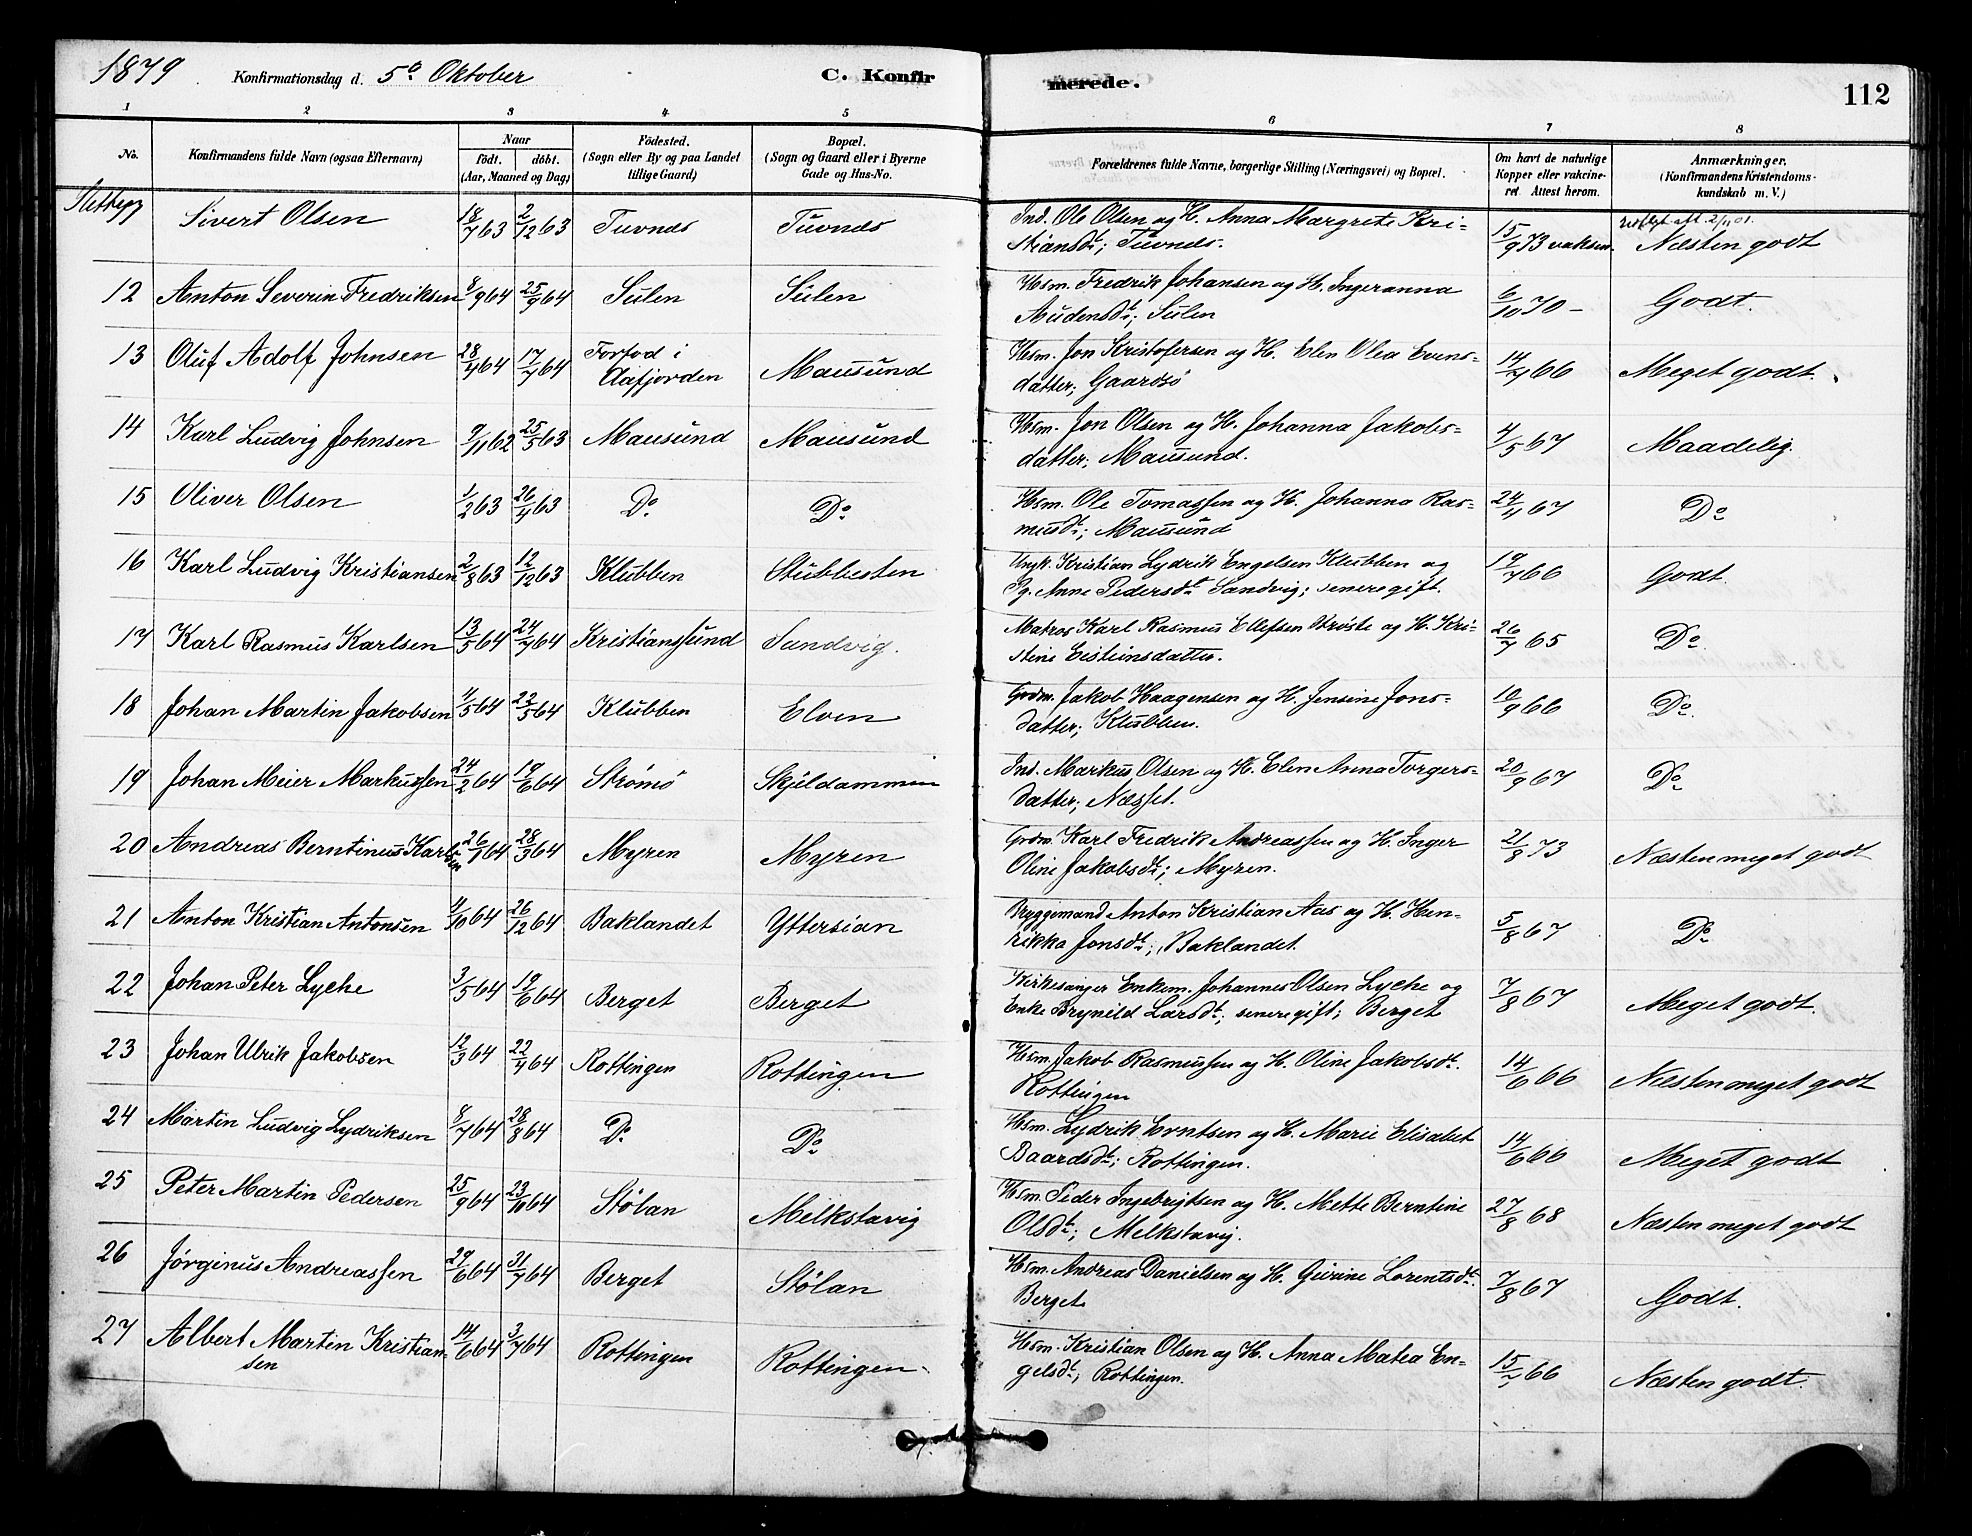 1879. Konfirmationsdag d. 5te Oktober C. Konfirmerede. 112
1 2 3 4 5 6 7 8
No. Konfirmandens fulde Navn (ogsaa Efternavn) Naar födt. döbt. (Aar, Maaned og Dag) Födested. (Sogn eller By og paa Landet tillige Gaard) Bopæl. (Sogn og Gaard eller i Byerne Gade og Hus-No. Forældrenes fulde Navne, borgerlige Stilling (Næringsvei) og Bopæl. Om havt de naturlige Kopper eller vakcineret. Attest herom. Anmærkninger. (Konfirmandens Kristendomskundskab m. V.)
Sivert Olsen 18/7 63 2/12 63 Tuvnes Tuvnes Ind. Ole Olsen og H. Anna Margrete Kri-
stiansdt; Tuvnes. 15/9 73 vaksin. Næsten godt
12 Anton Severin Fredriksen 8/9 64 25/9 64 Sulen Sulen Hsm. Fredrik Johansen og H. Ingeranna
Audensdt; Sulen 6/10 70 – Godt.
13 Oluf Adolf Johnsen 28/4 64 17/7 64 Forfod i
Aafjorden Mausund Hsm. Jon Kristofersen og H. Elen Olea Evens-
datter; Gaardsö 14/7 66 Meget godt.
14 Karl Ludvig Johnsen 9/11 62 25/5 63 Mausund Mausund Hsm. Jon Olsen og H. Johanna Jakobs-
datter; Mausund. 4/5 67 Maadelig.
15 Oliver Olsen 1/2 63 26/4 63 Do Do Hsm. Ole Tomassen og H. Johanna Ras-
musdt; Mausund 24/4 67 Do
16 Karl Ludvig Kristiansen 2/8 63 12/12 63 Klubben Stubbesten Ungk. Kristian Lydrik Engelsen Klubben og
Pg. Anne Pedersdt Sandvig; senere gift. 19/7 66 Godt.
17 Karl Rasmus Karlsen 13/5 64 24/7 64 Kristianssund Sandvig. Matros Karl Rasmus Ellefsen og H. Kri-
stine Eisteinsdatter. 26/7 65 Do
18 Johan Martin Jakobsen 4/5 64 22/5 64 Klubben Elven Grdm. Jakob Haagensen og H. Jensine Jons-
datter; Klubben. 10/9 66 Do
19 Johan Meier Markussen 24/2 64 19/6 64 Strömö Skjuldammen Ind. Markus Olsen og H. Elen Anna Torgers-
datter; Næsset. 20/9 67 Do
20 Andreas Berntinus Karl-
sen 26/1 64 28/3 64 Myren Myren Grdm. Karl Fredrik Andreassen og H. Inger
Oline Jakobsdt; Myren. 21/8 73 Næsten meget godt
21 Anton Kristian Antonsen 4/10 64 26/12 64 Baklandet Yttersian Bryggemand Anton Kristian Aas og H. Hen-
rikka Jonsdt; Baklandet. 5/8 67 Do
22 Johan Peter Lyche 3/5 64 19/6 64 Berget Berget Kirkesanger Enkem. Johannes Olsen Lyche og
Enke Brynild Larsdt; senere gift; Berget 7/8 67 Meget godt.
23 Johan Ulrik Jakobsen 12/3 64 22/4 64 Rottingen Rottingen Hsm. Jakob Rasmussen og H. Oline Jakobsdt.
Rottingen 14/6 66 Næsten meget godt
24 Martin Ludvig Lydriksen 8/7 64 28/8 64 Do Do Hsm. Lydrik Erntsen og H. Marie Elisabet
Baardsdt; Rottingen. 14/6 66 Meget godt
25 Peter Martin Pedersen 25/9 64 23/10 64 Stölan Melkstavig Hsm. Peder Ingebrigtsen og H. Mette Berntine
Olsdt; Melkstavig. 27/8 68 Næsten meget godt
26 Jörginus Andreassen 29/6 64 31/7 64 Berget Stölan Hsm. Andreas Danielsen og H. Gurine Lorentsdt.
Berget 7/8 67 Godt.
27 Albert Martin Kristian-
sen 14/6 64 3/7 64 Rottingen Rottingen Hsm. Kristian Olsen og H. Anna Matea En-
gelsdt; Rottingen. 15/7 66 Næsten godt.